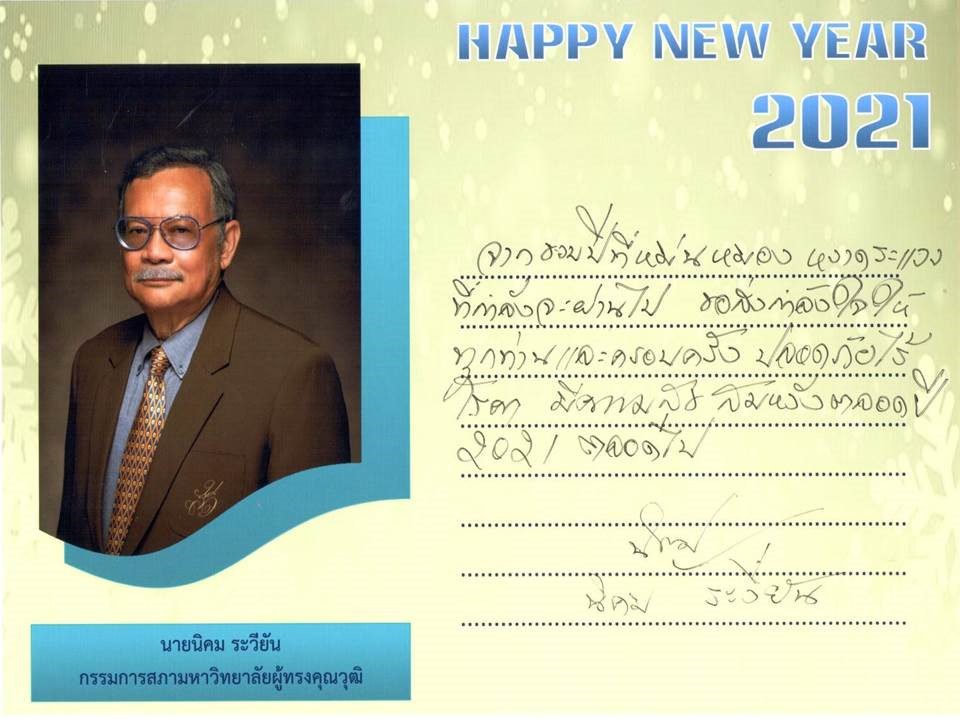 HAPPY NEW YEAR
2021
จากรอบปีที่หม่นหมอง หวาดระแวง
ที่กำลังจะผ่านไป ขอส่งกำลังใจให้
ทุกท่านและครอบครัว ปลอดภัยไร้
โรคา มีความสุข สมหวังตลอดปี
2021 ตลอดไป
นิคม ระวียัน
นายนิคม ระวียัน
กรรมการสภามหาวิทยาลัยผู้ทรงคุณวุฒิ